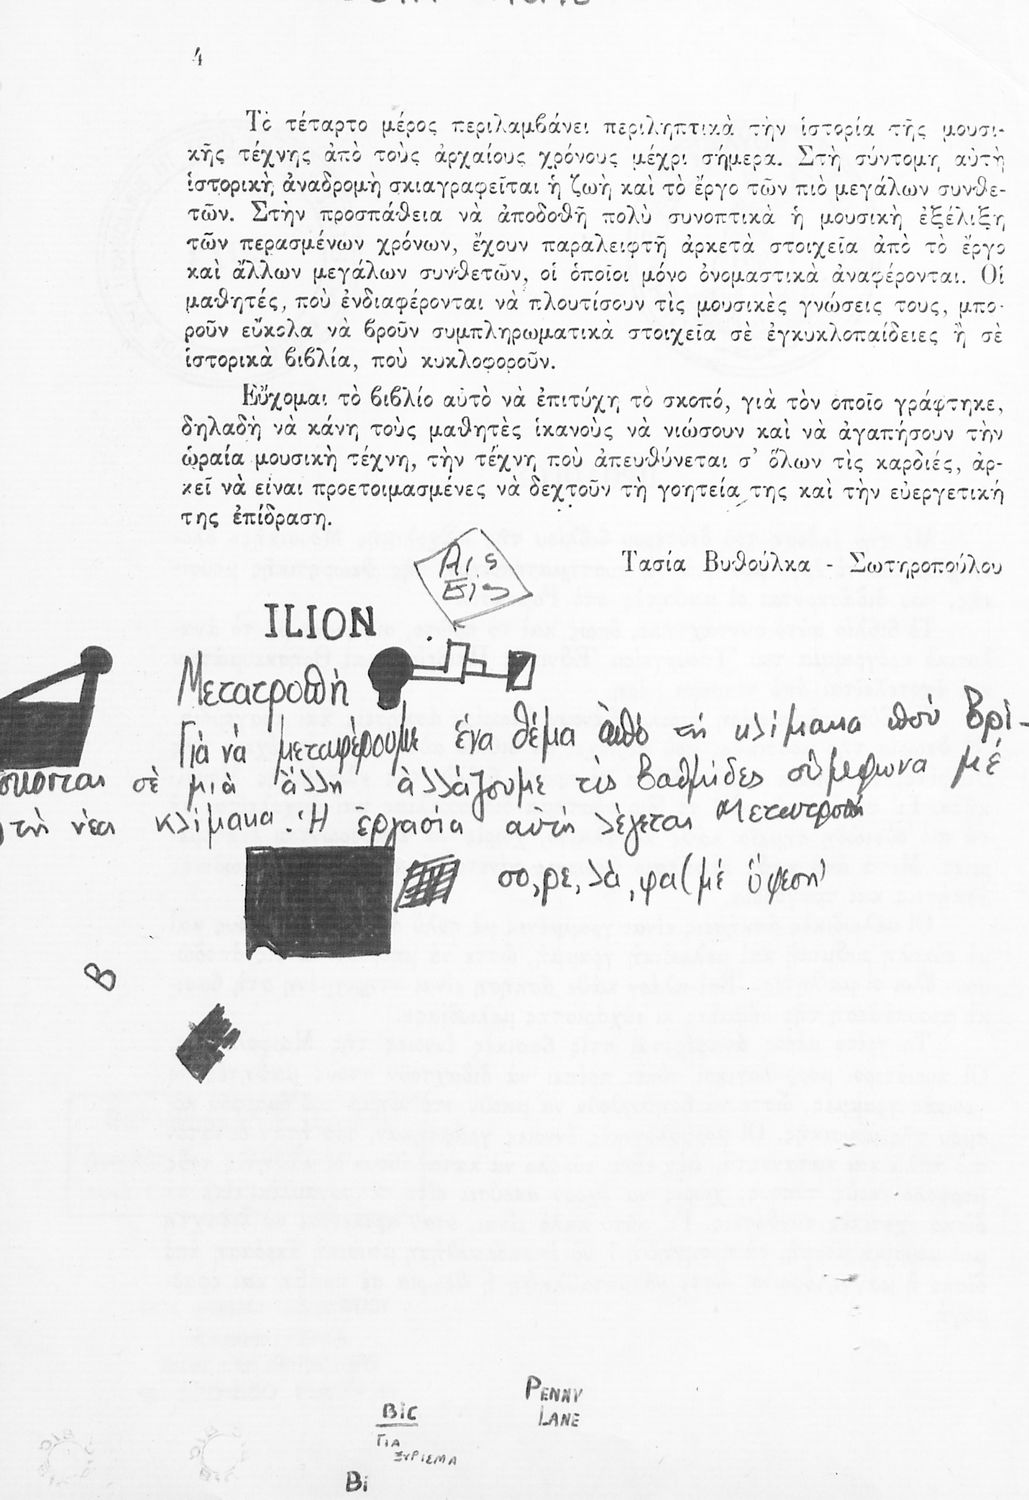 4
Τὸ τέταρτο μέρος περιλαμβάνει περιληπτικὰ τὴν ἱστορία τῆς μουσι-
κῆς τέχνης ἀπὸ τοὺς ἀρχαίους χρόνους μέχρι σήμερα. Στὴ σύντομη αὐτὴ
ἱστορικὴ ἀναδρομὴ σκιαγραφεῖται ἡ ζωὴ καὶ τὸ ἔργο τῶν πιὸ μεγάλων συνθε-
τῶν. Στὴν προσπάθεια νὰ ἀποδοθῆ πολὺ συνοπτικὰ ἡ μουσικὴ ἐξέλιξη
τῶν περασμένων χρόνων, ἔχουν παραλειφτῆ ἀρκετὰ στοιχεῖα ἀπὸ τὸ ἔργο
καὶ ἄλλων μεγάλων συνθετῶν, οἱ ὁποῖοι μόνο ὀνομαστικὰ ἀναφέρονται. Οἱ
μαθητές, ποὺ ἐνδιαφέρονται νὰ πλουτίσουν τὶς μουσικὲς γνώσεις τους, μπο-
ροῦν εὔκολα νὰ βροῦν συμπληρωματικὰ στοιχεῖα σὲ ἐγκυκλοπαίδειες ἢ σὲ
ἱστορικὰ βιβλία, ποὺ κυκλοφοροῦν.
Εὔχομαι τὸ βιβλίο αὐτὸ νὰ ἐπιτύχη τὸ σκοπό, γιὰ τὸν ὁποῖο γράφτηκε,
δηλαδὴ νὰ κάνη τοὺς μαθητὲς ἱκανοὺς νὰ νιώσουν καὶ νὰ ἀγαπήσουν τὴν
ὡραία μουσικὴ τέχνη, τὴν τέχνη ποὺ ἀπευθύνεται σ' ὅλων τὶς καρδιές, ἀρ-
κεῖ νὰ εἶναι προετοιμασμένες νὰ δεχτοῦν τὴ γοητεία της καὶ τὴν εὐεργετική
της ἐπίδραση.
Τασία Βυθούλκα - Σωτηροπούλου
ILION
Μετατροπή
Γιὰ νὰ μεταφέρουμε ἕνα θέμα ἀπὸ τὴ κλίμακα ποὺ βρί-
σκονται σὲ μιὰ ἄλλη ἀλλάζουμε τὶς βαθμίδες σύμφωνα μὲ
τὴ νέα κλίμακα. Ἡ ἐργασία αὐτὴ λέγεται μετατροπή
σο, ρε, λὰ, φα (μέ ὕφεση)
B
PENNY
LANE
BIC
ΓΙΑ
ΞΥΡΙΣΜΑ
Bi